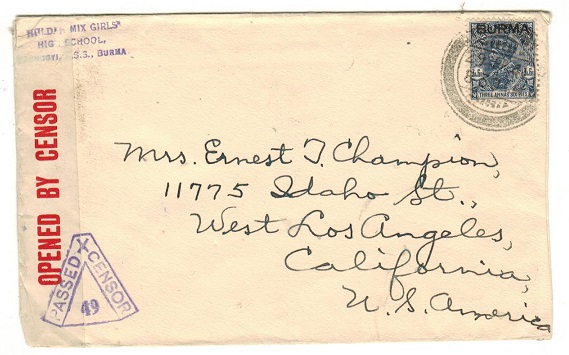 HULDAH MIX GIRLS'
HIGH SCHOOL,
S.S., BURMA
BURMA
THREE ANNAS SIX PIES
OPENED BY CENSOR
Mrs. Ernest T. Champion,
11775 Idaho St.,
West Los Angeles,
California,
U.S. America
PASSED X CENSOR
49